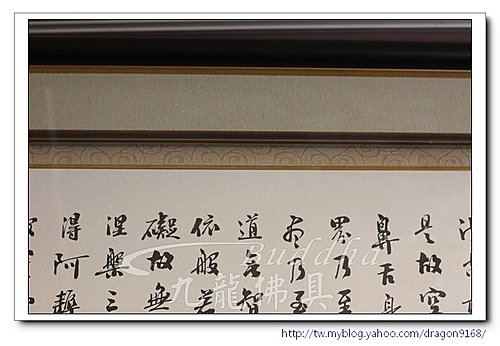 是故空
鼻舌身
界乃至
尽乃至
道无智
依般若
礙故無
涅槃三
得阿耨
Buddha
九龍佛具
http://tw.myblog.yahoo.com/dragon9168/